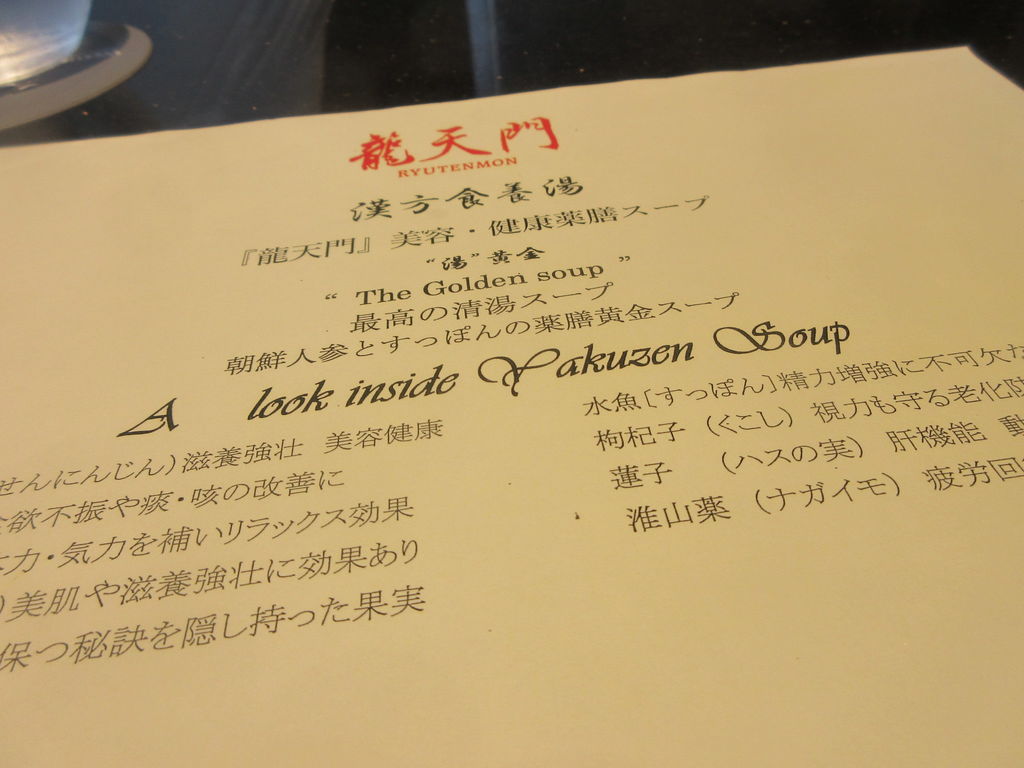 龍天門
RYUTENMON
漢方食養湯
『龍天門』美容・健康薬膳スープ
“湯”黄金
“ The Golden soup ”
最高の清湯スープ
朝鮮人参とすっぽんの薬膳黄金スープ
A look inside Yakuzen Soup
せんにんじん)滋養強壮 美容健康
欲不振や痰・咳の改善に
力・気力を補いリラックス効果
)美肌や滋養強壮に効果あり
保つ秘訣を隠し持った果実
水魚[すっぽん]精力増強に不可欠な
枸杞子（くこし）視力も守る老化防
蓮子 （ハスの実）肝機能 動
淮山薬（ナガイモ）疲労回